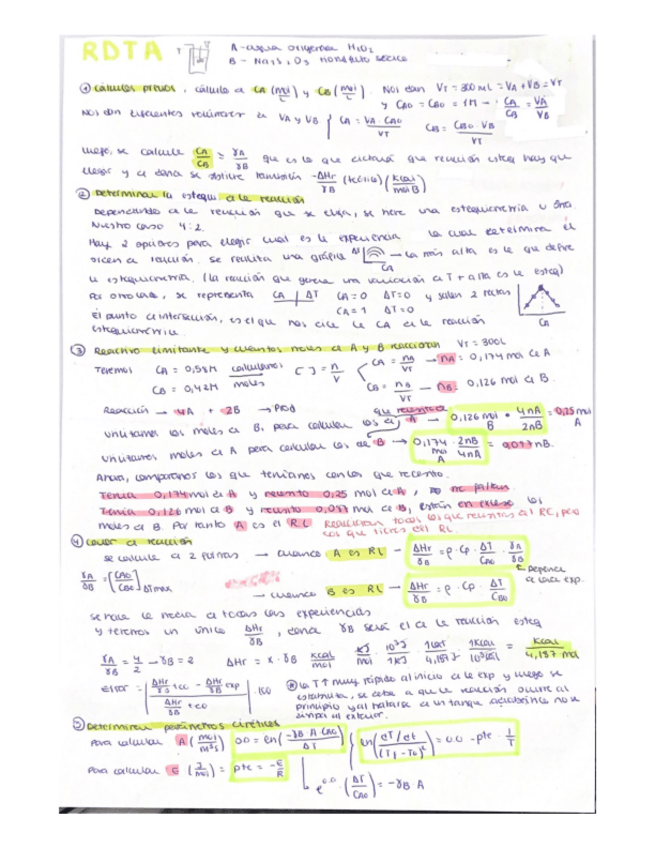 RDTA
A - agua oxigenada H₂O₂
B - Na₂S₂O₃
① cálculos previos, cálculo de CA (mol/L) y CB (mol/L). Nos dan VT = 300 mL = VA + VB = VT
y CA0 = CB0 = 1M → CA/CB = VA/VB
Nos dan diferentes volúmenes de VA y VB { CA = VA · CA0 / VT   CB = CB0 · VB / VT
luego, se calcula CA/CB = γA/γB que es lo que dictará que reacción esteq hay que
elegir y de donde se obtiene también -ΔHr/γB (teórico) (kcal/mol B)
② Determinar la estequi de la reacción
Dependiendo de la reacción que se elija, se hace una estequiometría u otra.
Nuestro caso 4:2.
Hay 2 opciones para elegir cual es la experiencia la cual determina el
orden de reacción. se realiza una gráfica ΔT CA → la más alta es la que define
la estequiometría. (la reacción que genere una variación de T + alta es la esteq)
Por otro lado, se representa CA | ΔT CA = 0 ΔT = 0 y salen 2 rectas
CA = 1 ΔT = 0
El punto de intersección, es el que nos dice la CA de la reacción CA
estequiométrica.
③ Reactivo limitante y cuantos moles de A y B reaccionan VT = 300L
Tenemos CA = 0,58M calculamos C = n/V { CA = nA/VT → nA = 0,174 mol de A
CB = 0,42M moles CB = nB/VT → nB = 0,126 mol de B.
Reacción → 4A + 2B → Prod
utilizamos los moles de B, para calcular los de A que necesita → 0,126 mol B · 4nA/2nB = 0,25 mol A
utilizamos los moles de A para calcular los de B → 0,174 mol A · 2nB/4nA = 0,087 nB.
Ahora, comparamos los que teníamos con los que necesito.
Tenía 0,174 mol de A y necesito 0,25 mol de A, me faltan.
Tenía 0,126 mol de B y necesito 0,087 mol de B, están en exceso los
moles de B. Por tanto A es el RL Reaccionan todos los que necesitas del RC, pero
los que tienes del RL.
④ Calor de reacción
se calcula de 2 formas → cuando A es RL - ΔHr/γB = ρ · Cp · ΔT/CA0 · γA/γB
Depende de cada exp.
γA/γB = (CA0/CB0) ΔTmax
→ cuando B es RL - ΔHr/γB = ρ · Cp · ΔT/CB0
se hace la media de todas las experiencias
y tenemos un único ΔHr/γB, donde γB será el de la reacción esteq
γA/γB = 4/2 → γB = 2 ΔHr = x · γB kcal/mol kJ/mol 10³J/1kJ 1cal/4,187J 1kcal/10³cal = kcal/4,187 mol
error = | (ΔHr/γB tco - ΔHr/γB exp) / (ΔHr/γB tco) | · 100
* la T↑ muy rápido al inicio de la exp y luego se
estabiliza, se debe a que la reacción ocurre al
principio y al tratarse de un tanque adiabático no se
disipa al exterior.
⑤ Determinar parámetros cinéticos
Para calcular A (mol/m³s) o.o = ln(-γB A · CA0 / ΔT) { ln( (dT/dt) / (Tf - T0)² ) = o.o - pte · 1/T
Para calcular E (J/mol) = pte = -E/R
e^o.o · (ΔT/CA0) = -γB · A